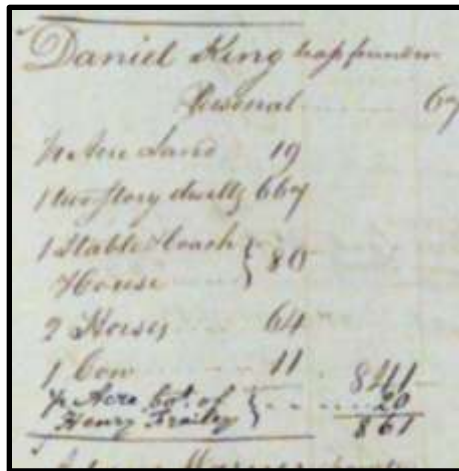 Daniel King brass founder
Personal ........ 67
½ Acre Land 19
1 two story dwellg 667
1 Stable & Coach
House } 80
2 Horses 64
1 Cow 11 841
½ Acre bot. of
Henry Frailey } 20
861